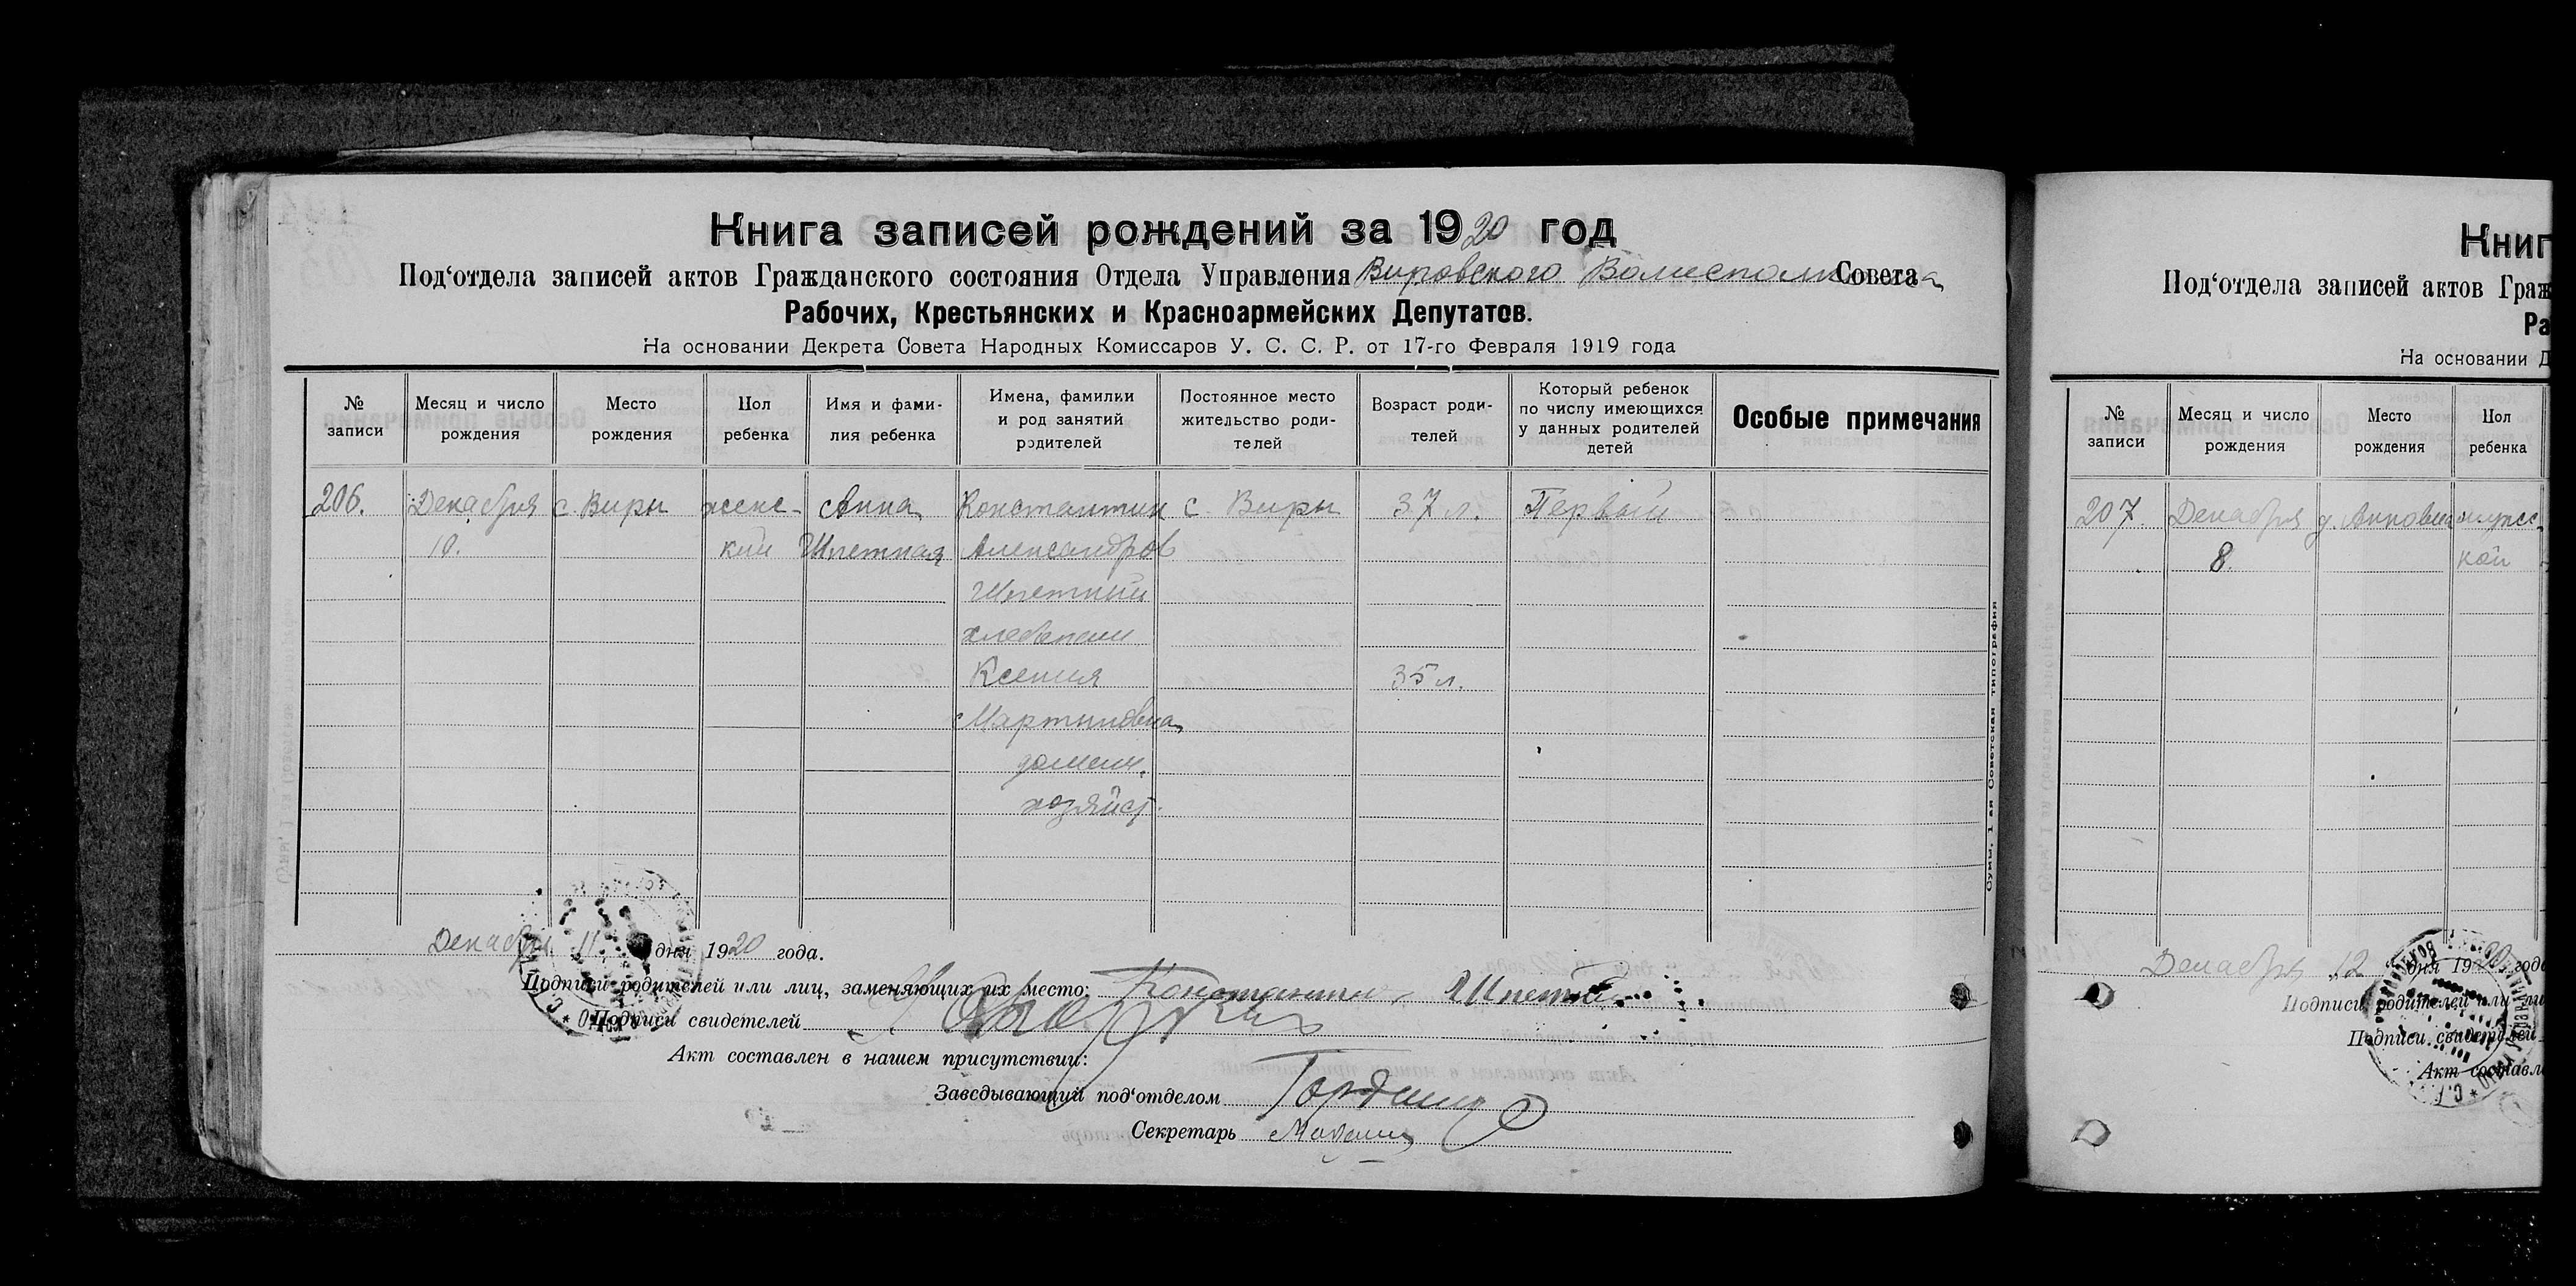 Книга записей рождений за 1920 год
Под‘отдела записей актов Гражданского состояния Отдела Управления Вировского Волисполкома Совета
Рабочих, Крестьянских и Красноармейских Депутатов.
На основании Декрета Совета Народных Комиссаров У. С. С. Р. от 17-го Февраля 1919 года
№ записи
Месяц и число рождения
Место рождения
Пол ребенка
Имя и фами-
лия ребенка
Имена, фамилии
и род занятий
родителей
Постоянное место
жительство роди-
телей
Возраст роди-
телей
Который ребенок
по числу имеющихся
у данных родителей
детей
Особые примечания
206.
Декабря
10.
с. Виры
женс-
кий
Анна
Шпетная
Константин
Александров
Шпетний
хлебопаш
Ксения
Мартиновна
домашн.
хозяйст.
с. Виры
37 л.
35 л.
Первый
Сумы, 1-ая Советская типография
Декабря 11 дня 1920 года.
Подписи родителей или лиц, заменяющих их место: Константин Шпетний
Подписи свидетелей
Акт составлен в нашем присутствии:
Заведывающий под‘отделом
Секретарь
Книг
Под‘отдела записей актов Граж
Ра
На основании Д
№ записи
Месяц и число рождения
Место рождения
Пол ребенка
207.
Декабря
8.
мужс-
кой
Декабря 12 дня 1920 года
Подписи родителей или ли
Подписи свидетелей
Акт составле